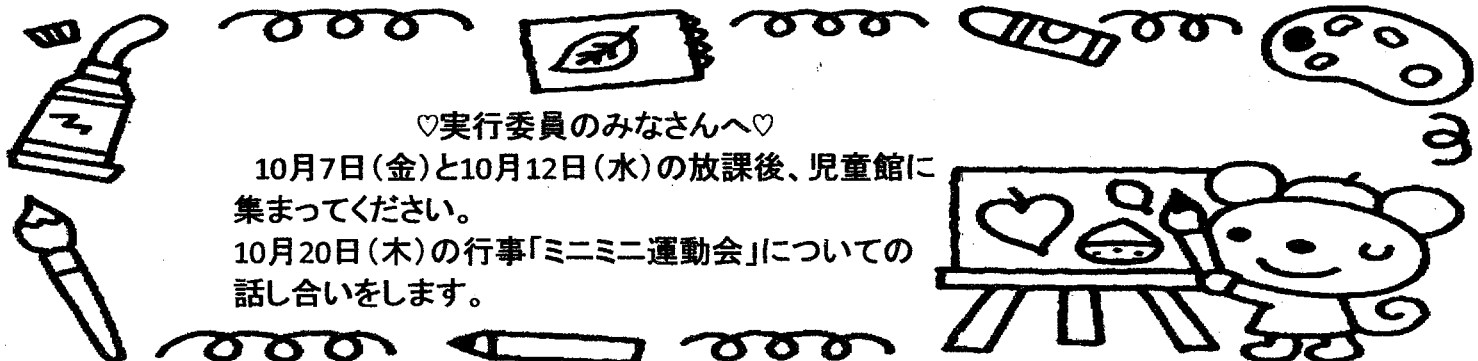 ♡実行委員のみなさんへ♡
10月7日（金）と10月12日（水）の放課後、児童館に
集まってください。
10月20日（木）の行事「ミニミニ運動会」についての
話し合いをします。